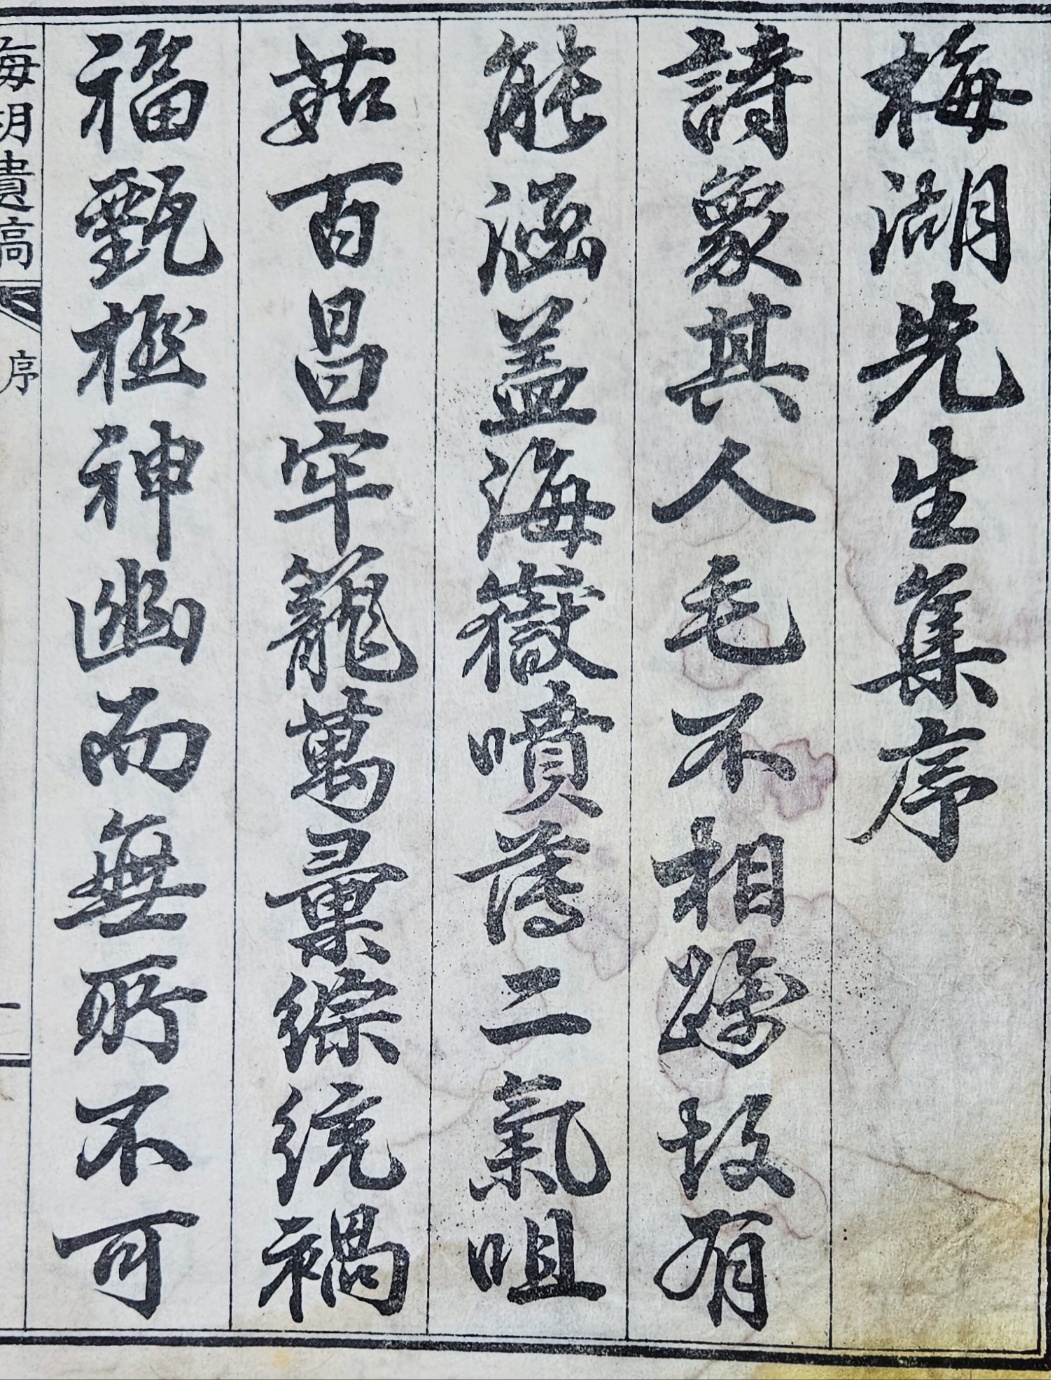 梅湖先生集序
詩象其人毛不相踦故有
能涵盖海嶽噴薄二氣咀
茹百昌牢籠萬彙綜統禍
福甄極神幽而無所不可
梅湖遺稿
序
一